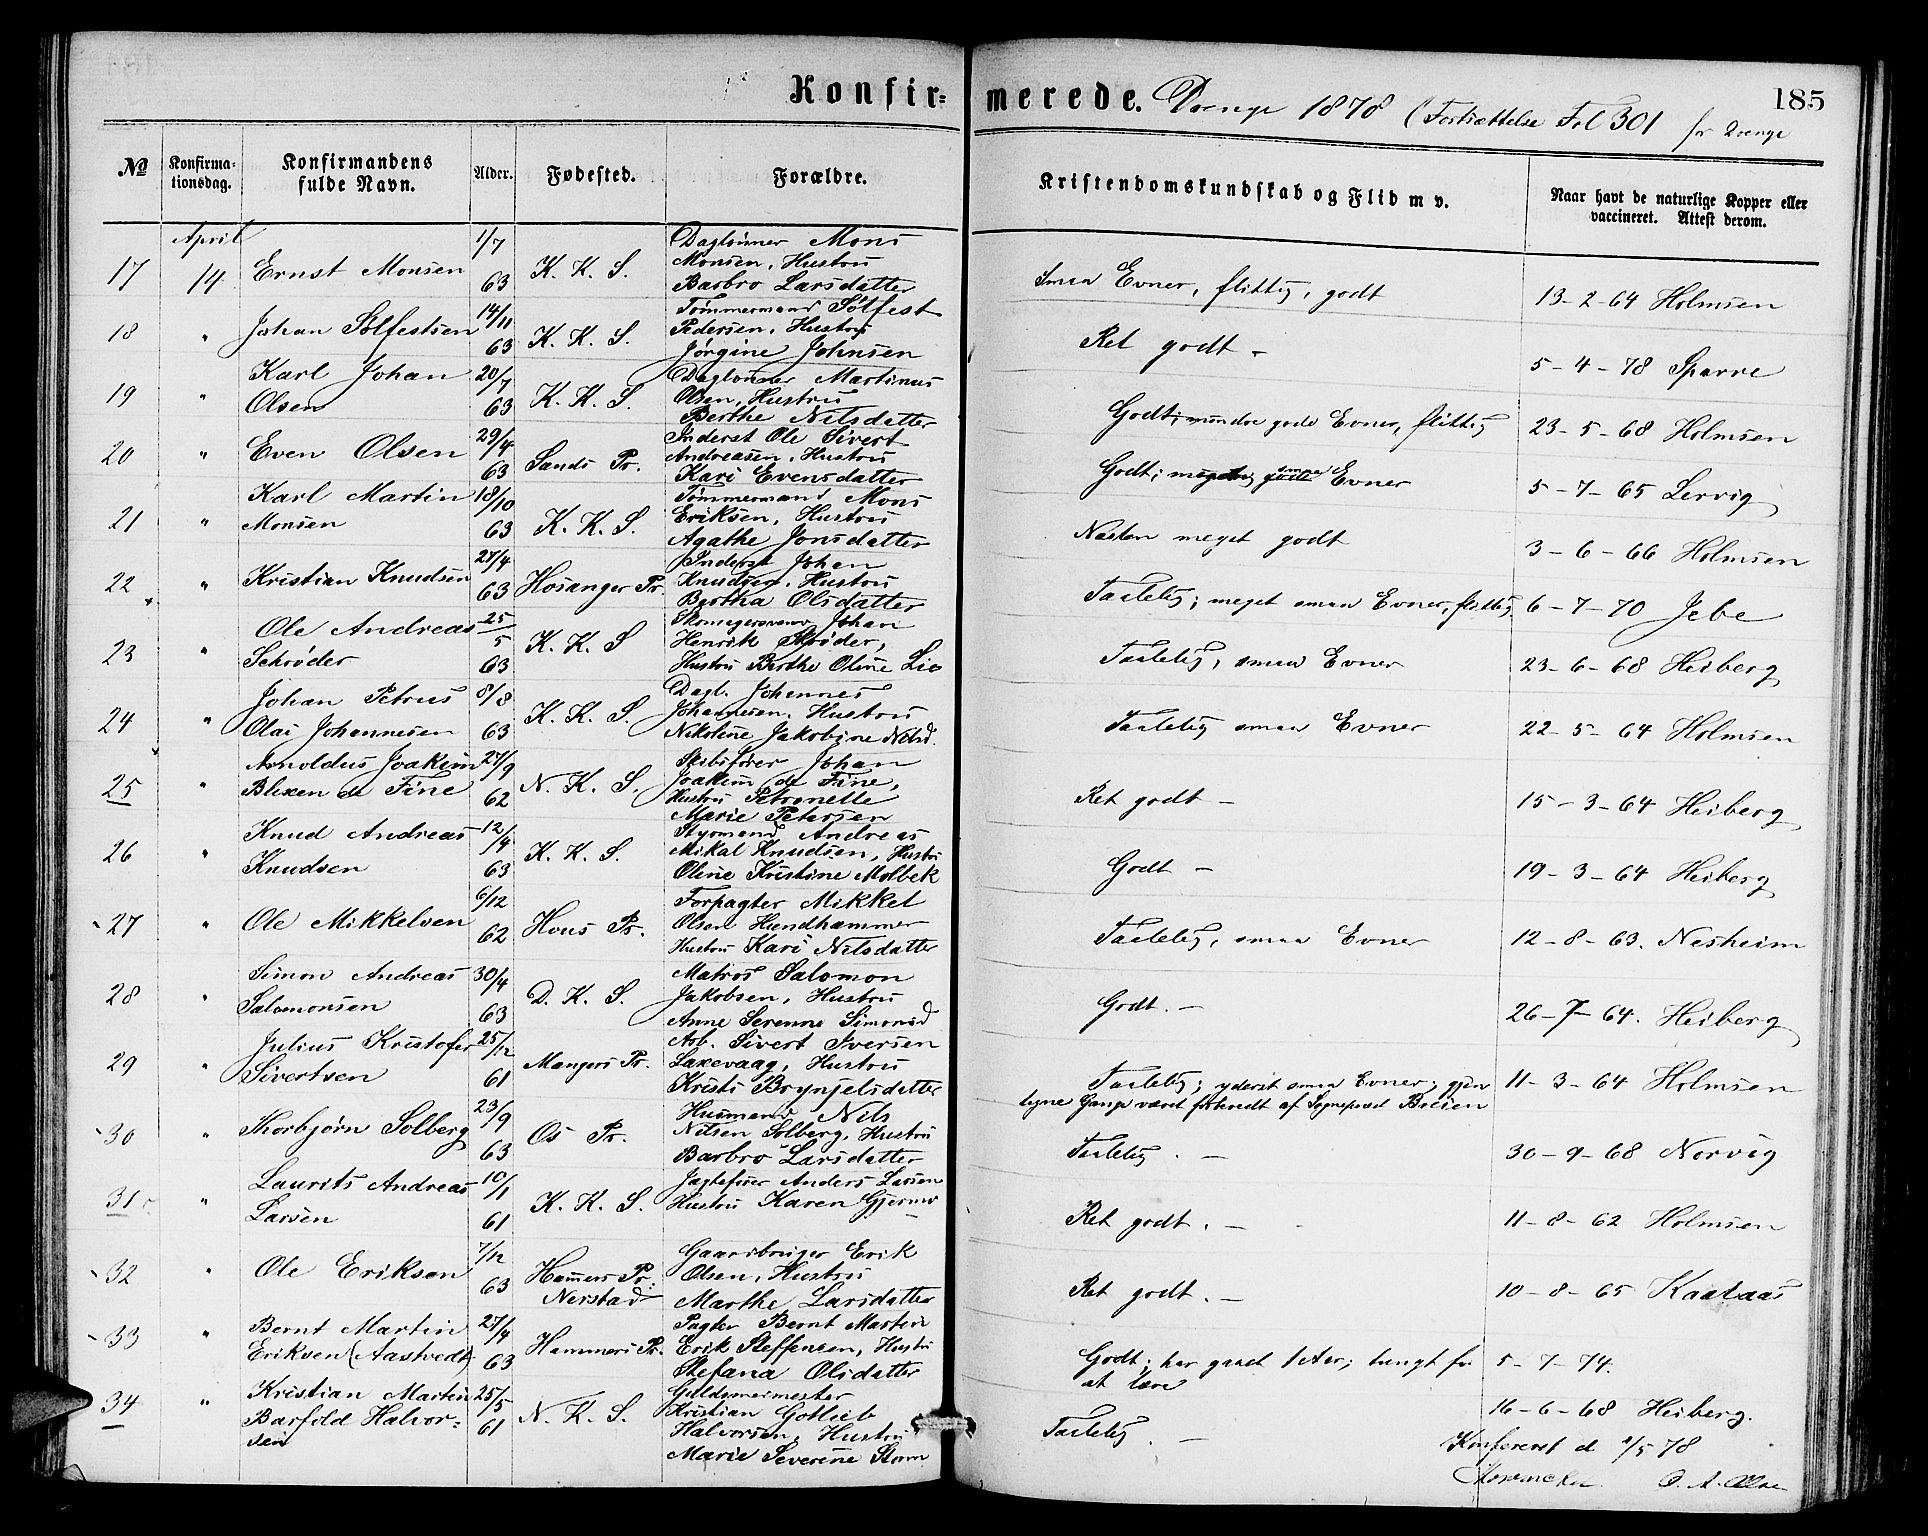 Konfirmerede. Drenge 1878 (Fortsættelse Fol 301 for Drenge
185
No Konfirmationsdag. Konfirmandens fulde Navn. Alder. Fødested. Forældre. Kristendomskundskab og Flid m v. Naar havt de naturlige Kopper eller vaccineret. Attest derom.
17 April 14 Ernst Monsen 1/7 63 K. K. S. Daglønner Mons Monsen, Hustru Barbro Larsdatter Smaa Evner, flittig, godt 13-2-64 Holmsen
18 " Johan Solfestsen 14/11 63 K. K. S. Tømmermand Solfest Pedersen, Hustru Jørgine Johnsen Ret godt - 5-4-78 Sparre
19 " Karl Johan Olsen 20/7 63 K. K. S. Daglønner Martinus Olsen, Hustru Berthe Nilsdatter Godt; mindre gode Evner, flittig 23-5-68 Holmsen
20 " Even Olsen 29/4 63 Sunds Pr. Inderst Ole Sivert Andreasen, Hustru Kari Evensdatter Godt; meget smaa Evner 5-7-65 Lervig
21 " Karl Martin Monsen 18/10 63 K. K. S. Tømmermand Mons Eriksen, Hustru Agathe Jonsdatter Næsten meget godt 3-6-66 Holmsen
22 " Kristian Knudsen 27/4 63 Hosanger Pr. Inderst Johan Knudsen, Hustru Bertha Olsdatter Taalelig; meget smaa Evner, flittig 6-7-70 Jebe
23 " Ole Andreas Schrøder 25/5 63 K. K. S Skomagersvend Johan Henrik Schrøder, Hustru Berthe Oline Lie Taalelig, smaa Evner 23-6-68 Heiberg
24 " Johan Petrus Olai Johannesen 8/8 63 K. K. S. Dagl. Johannes Johannesen, Hustru Nikoline Jakobine Nilsd. Taalelig smaa Evner 22-5-64 Holmsen
25 " Arnoldus Joakim Blixen de Fine 27/9 62 N. K. S. Skibsfører Johan Joakim de Fine, Hustru Petronelle Marie Petersen Ret godt - 15-3-64 Heiberg
26 " Knud Andreas Knudsen 12/4 63 K. K. S. Styrmand Andreas Mikal Knudsen, Hustru Oline Kristine Molbek Godt - 19-3-64 Heiberg
27 " Ole Mikkelsen 6/12 62 Hous Pr. Forpagter Mikkel Olsen Hundhammer Hustru Kari Nilsdatter Taalelig, smaa Evner 12-8-63. Nesheim
28 " Simon Andreas Salomonsen 30/4 63 D. K. S. Matros Salomon Jakobsen, Hustru Anne Serenne Simonsd Godt. - 26-7-64. Heiberg
29 " Julius Kristofer Sivertsen 25/12 61 Mangers Pr. Arb. Sivert Iversen Laxevaag, Hustru Kristi Brynjelsdatter Taalelig; yderst smaa Evner; gjen tagne Gange været forhørt af Sogneprest 11-3-64 Holmsen
30 " Thorbjørn Solberg 23/9 63 Os Pr. Husmand Nils Nilsen Solberg, Hustru Barbro Larsdatter Taalelig. - 30-9-68 Norvig
31 " Laurits Andreas Larsen 10/1 61 K. K. S. Jagtefører Anders Larsen Hustru Karen Ret godt. - 11-8-62 Holmsen
32 " Ole Eriksen 7/12 63 Hammers Pr. Nerstad Gaardbruger Erik Olsen, Hustru Marthe Larsdatter Ret godt. - 10-8-65 Kaataas
33 " Bernt Martin Eriksen (Aastvedt) 27/4 63 Hammers Pr. Pagter Bernt Martin Erik Steffensen, Hustru Stefana Olsdatter Godt; har gaaet 1 Aar; tungt for at lære 5-7-74.
34 " Kristian Martin Barfold Halvorsen 25/5 61 N. K. S. Guldsmedmester Kristian Gotlieb Halvorsen, Hustru Marie Severine Storm Taalelig. - 16-6-68 Heiberg.
Konfereret d 2/5 78